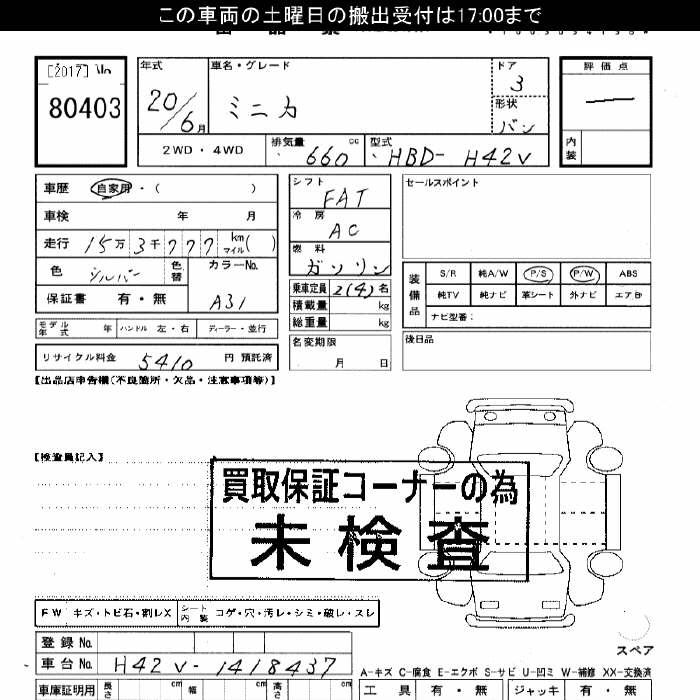 この車両の土曜日の搬出受付は17:00まで
[2017] No
80403
年式 車名・グレード ドア 評価点
20/6月 ミニカ 3
形状
バン
2WD・4WD 排気量 660 cc 型式 HBD- H42V 内装
車歴 自家用・( )
車検 年 月
走行 15万3千777 km マイル ( )
色 シルバー 色替 カラーNo. A31
保証書 有・無
モデル年式 年 ハンドル 左・右 ディーラー・並行
リサイクル料金 5410 円 預託済
シフト FAT
冷房 AC
燃料 ガソリン
乗車定員 2(4) 名
積載量 kg
総重量 kg
名変期限
月 日
セールスポイント
装備品 S/R 純A/W P/S P/W ABS
純TV 純ナビ 革シート 外ナビ エアB
ナビ型番:
後日品
【出品店申告欄(不良箇所・欠品・注意事項等)】
【検査員記入】
買取保証コーナーの為
未検査
FW キズ・トビ石・割レX シート内装 コゲ・穴・汚レ・シミ・破レ・スレ
登録No.
車台No. H42V-1418437
車庫証明用 長さ cm 幅 cm 高さ cm
スペア
A-キズ C-腐食 E-エクボ S-サビ U-凹ミ W-補修 XX-交換済
工具 有・無 ジャッキ 有・無